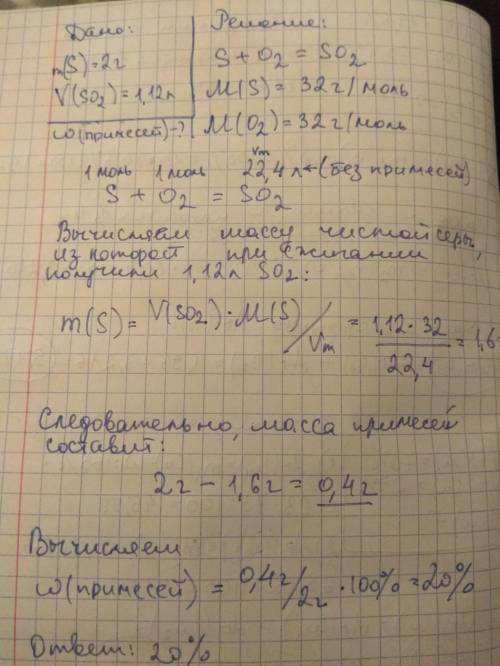 Дано:
m(S)=2г
V(SO₂)=1,12л
ω(примесей)-?
Решение:
S + O₂ = SO₂
M(S) = 32г/моль
M(O₂) = 32г/моль
Vm
1 моль 1 моль 22,4 л ← (без примесей)
S + O₂ = SO₂
Вычисляем массу чистой серы,
из которой при сжигании
получили 1,12л SO₂:
m(S) = V(SO₂)·M(S)/Vm = 1,12·32/22,4 = 1,6
Следовательно, масса примесей
составит:
2г – 1,6г = 0,4г
Вычисляем
ω(примесей) = 0,4г/2г ·100% = 20%
Ответ: 20%